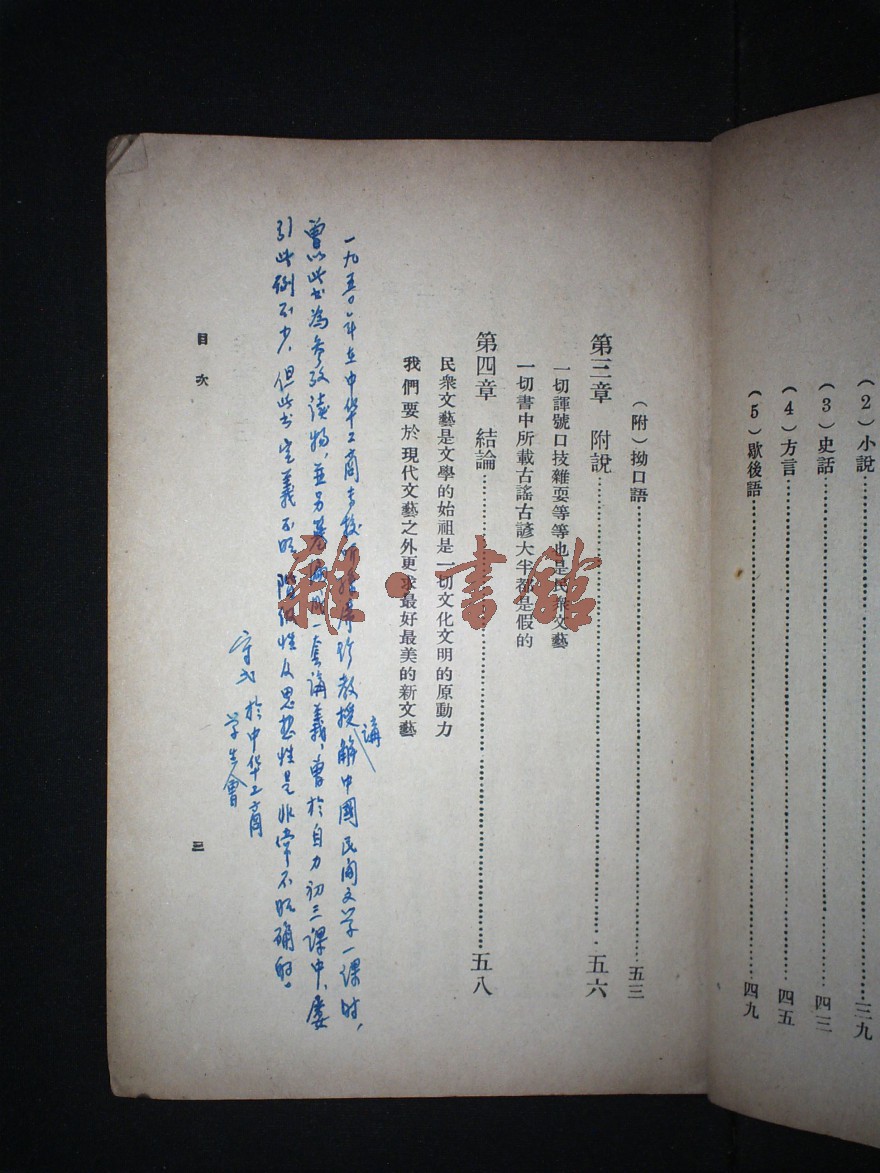 (2)小說……三九
(3)史話……四三
(4)方言……四五
(5)歇後語……四九
(附)拗口語……五三
第三章 附說……五六
一切諢號口技雜耍等等也是民衆文藝
一切書中所載古謠古諺大半都是假的
第四章 結論……五八
民衆文藝是文學的始祖是一切文化文明的原動力
我們要於現代文藝之外更求最好最美的新文藝
一九五〇年在中华工商专校 教授講解中國民间文学一課时,
曾以此书為参攷读物,並另 一套講義,曾於自力初三課中,屡
引此例不少,但此书定义不明 階级性及思想性是非常不明确的。
於中华工商
学生會
目次
三
雜·書館